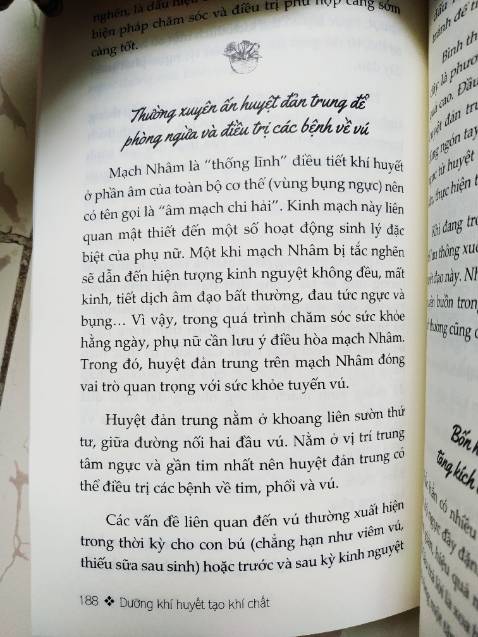 nghẽn, là dấu hiệu
biện pháp chăm sóc và điều trị phù hợp càng sớm
càng tốt.
Thường xuyên ấn huyệt đản trung để
phòng ngừa và điều trị các bệnh về vú
Mạch Nhâm là “thống lĩnh” điều tiết khí huyết
ở phần âm của toàn bộ cơ thể (vùng bụng ngực) nên
có tên gọi là “âm mạch chi hải”. Kinh mạch này liên
quan mật thiết đến một số hoạt động sinh lý đặc
biệt của phụ nữ. Một khi mạch Nhâm bị tắc nghẽn
sẽ dẫn đến hiện tượng kinh nguyệt không đều, mất
kinh, tiết dịch âm đạo bất thường, đau tức ngực và
bụng... Vì vậy, trong quá trình chăm sóc sức khỏe
hằng ngày, phụ nữ cần lưu ý điều hòa mạch Nhâm.
Trong đó, huyệt đản trung trên mạch Nhâm đóng
vai trò quan trọng với sức khỏe tuyến vú.
Huyệt đản trung nằm ở khoang liên sườn thứ
tư, giữa đường nối hai đầu vú. Nằm ở vị trí trung
tâm ngực và gần tim nhất nên huyệt đản trung có
thể điều trị các bệnh về tim, phổi và vú.
Các vấn đề liên quan đến vú thường xuất hiện
trong thời kỳ cho con bú (chẳng hạn như viêm vú,
thiếu sữa sau sinh) hoặc trước và sau kỳ kinh nguyệt
188 ❖ Dưỡng khí huyết tạo khí chất
Bình th
là phươ
cao. Đầu
đản tru
ngón tay
huyệt
thực hiện t
Khi đang tr
thông xu
đạo này. Nh
buồn tron
thương cũng c
Bốn h
tăng kích
có nhiều
ngực đầy đặn
hiệu quả n